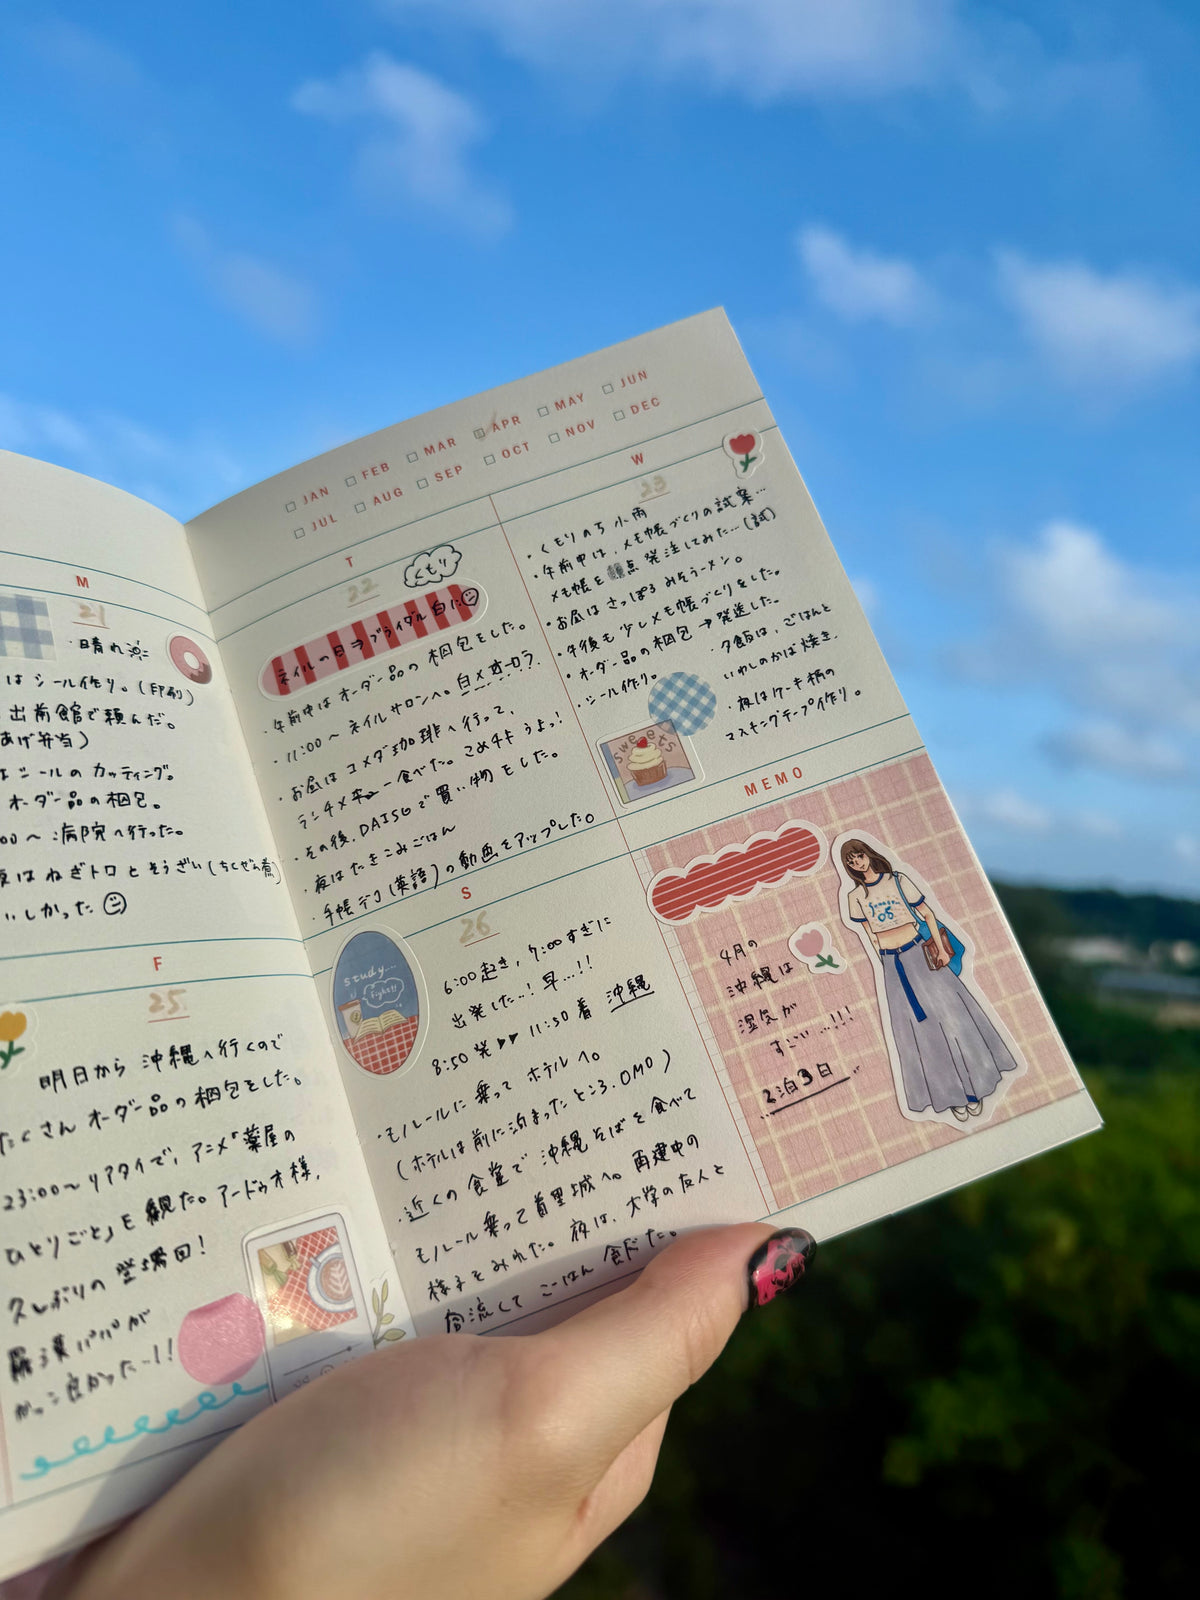 JAN FEB MAR APR MAY JUN
JUL AUG SEP OCT NOV DEC
M
21
・晴れ
はシール作り。(印刷)
出前館で頼んだ。
あげ弁当)
はシールのカッティング。
オーダー品の梱包。
00〜病院へ行った。
夜はねぎトロとそうざい(ちくぜん煮)
いしかった
T
22
くもり
ネイルの日⇒ブライダル白に
・午前中はオーダー品の梱包をした。
・11:00〜ネイルサロンへ。白×オーロラ.
・お昼はコメダ珈琲へ行って、
ランチメニュー食べた。こめチキうまっ!
・その後、DAISOで買い物をした。
・夜はたきこみごはん
・手帳デコ(英語)の動画をアップした。
W
23
・くもりのち小雨
・午前中は、メモ帳づくりの試案…
メモ帳を 点発注してみた…(試)
・お昼はさっぽろみそラーメン。
・午後も少しメモ帳づくりをした。
・オーダー品の梱包→発送した。
・シール作り。
・夕飯は、ごはんと
いわしのかば焼き.
・夜はケーキ柄の
マスキングテープ作り。
sweets
F
25
明日から沖縄へ行くので
たくさんオーダー品の梱包をした。
23:00〜リアタイで、アニメ「薬屋の
ひとりごと」を観た。アードゥオ様、
久しぶりの登場回!
羅漢パパが
かっこ良かったー!!
S
26
study...
fight!!
6:00起き、7:00すぎに
出発した…!早…!!
8:50発▶▶11:50着 沖縄
・モノレールに乗ってホテルへ。
(ホテルは前に泊まったところ.OMO)
・近くの食堂で沖縄そばを食べて
モノレール乗って首里城へ。再建中の
様子をみれた。夜は、大学の友人と
合流してごはん食べた。
MEMO
4月の
沖縄は
湿気が
すごい…!!!
2泊3日
05